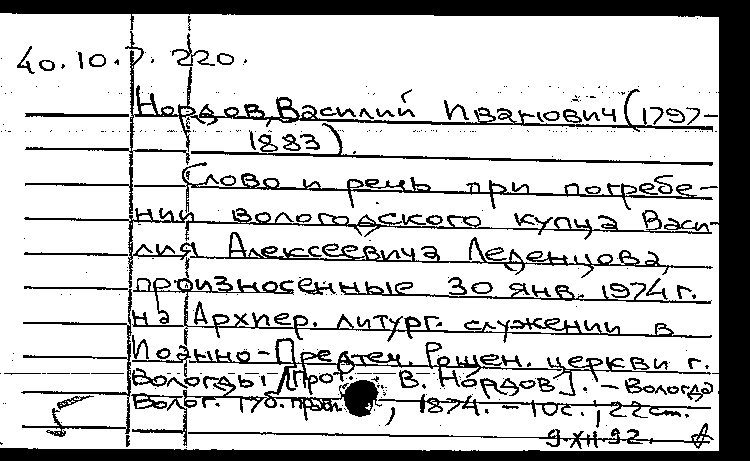 40.10.7. 220.
Нордов, Василий Иванович (1797-
1883).
Слово и речь при погребе-
нии вологодского купца Васи-
лия Алексеевича Леденцова,
произносенные 30 янв. 1974 г.
на Архиер. литург. служении в
Иоанно-Предтеч. Рощен. церкви г.
Вологды / [Прот. В. Нордов]. - Вологда
Волог. губ. , 1874. - 10 с.; 22 см.
9.XII.92.